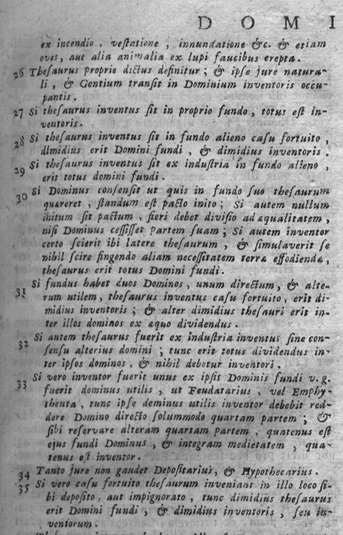 DOMI
ex incendio, vestatione, innundatione &c. & etiam
oves, aut alia animalia ex lupi faucibus erepta.
26 Thesaurus proprio dictus definitur; & ipse jure natura-
li, & Gentium transit in Dominium inventoris occu-
pantis.
27 Si thesaurus inventus sit in proprio fundo, totus est in-
ventoris.
28 Si thesaurus inventus sit in fundo alieno casu fortuito,
dimidius erit Domini fundi, & dimidius inventoris.
29 Si thesaurus inventus sit ex industria in fundo alieno,
erit totus domini fundi.
30 Si Dominus consensit ut quis in fundo suo thesaurum
quæreret, standum est pacto inito; Si autem nullum
initum sit pactum, fieri debet divisio ad æqualitatem,
nisi Dominus cessisset partem suam; Si autem inventor
certo scierit ibi latere thesaurum, & simulaverit se
nihil scire fingendo aliam necessitatem terræ effodiendæ,
thesaurus erit totus Domini fundi.
31 Si fundus habet duos Dominos, unum directum, & alte-
rum utilem, thesaurus inventus casu fortuito, erit di-
midius inventoris; & alter dimidius thesauri erit in-
ter illos dominos ex æquo dividendus.
32 Si autem thesaurus fuerit ex industria inventus sine con-
sensu alterius domini; tunc erit totus dividendus in-
ter ipsos dominos, & nihil debetur inventori.
33 Si vero inventor fuerit unus ex ipsis Dominis fundi v.g.
fuerit dominus utilis, ut Feudatarius, vel Emphy-
theuta, tunc ipse dominus utilis inventor debebit red-
dere Domino directo solummodo quartam partem; &
sibi reservare alteram quartam partem, quatenus est
ejus fundi Dominus, & integram medietatem, qua-
tenus est inventor.
34 Tanto jure non gaudet Depositarius, & Hypothecarius.
35 Si vero casu fortuito thesaurum inveniant in illo loco si-
bi deposito, aut impignorato, tunc dimidius thesaurus
erit Domini fundi, & dimidius inventoris, seu in-
ventorum.